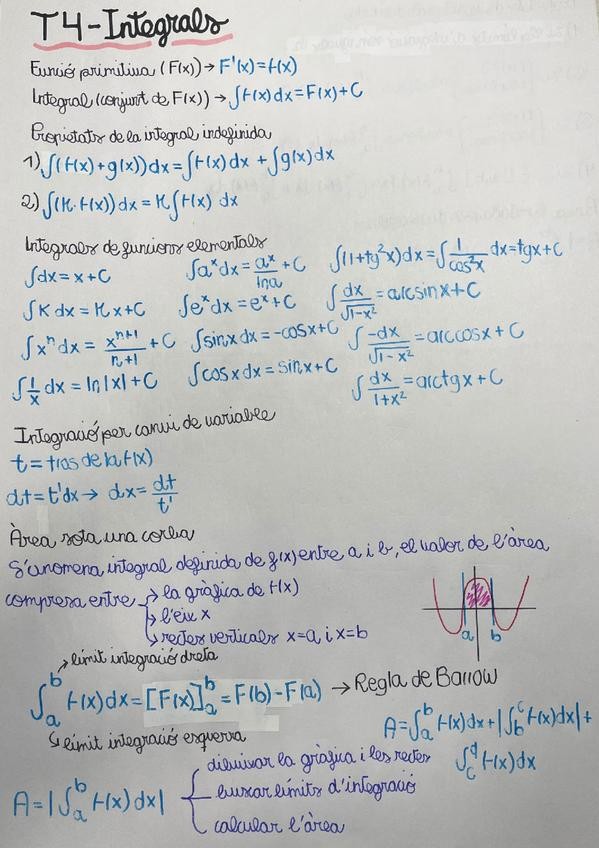 T4-Integrals
Funció primitiva (F(x)) → F'(x)=f(x)
Integral (conjunt de F(x)) → ∫f(x)dx=F(x)+C
Propietats de la integral indefinida
1) ∫(f(x)+g(x))dx=∫f(x)dx+∫g(x)dx
2) ∫(K·f(x))dx=K∫f(x) dx
Integrals de funcions elementals
∫dx=x+C
∫K dx=Kx+C
∫xⁿdx=xⁿ⁺¹/n+1+C
∫1/x dx=ln|x|+C
∫aˣdx=aˣ/lna+C
∫eˣdx=eˣ+C
∫sinxdx=-cosx+C
∫cosxdx=sinx+C
∫(1+tg²x)dx=∫1/cos²x dx=tgx+C
∫dx/√1-x²=arcsinx+C
∫-dx/√1-x²=arccosx+C
∫dx/1+x²=arctgx+C
Integració per canvi de variable
t=tros de la f(x)
dt=t'dx→ dx=dt/t'
Àrea sota una corba
S'anomena integral definida de f(x) entre a i b, el valor de l'àrea
compresa entre → la gràfica de f(x)
→ l'eix x
→ rectes verticals x=a, i x=b
a b
→ límit integració dreta
∫ₐᵇ f(x)dx=[F(x)]ₐᵇ=F(b)-F(a) → Regla de Barrow
↳ límit integració esquerra
A=∫ₐᵇ f(x)dx+|∫_b^c f(x)dx|+
∫_c^d f(x)dx
A=|∫ₐᵇ f(x)dx|
dibuixar la gràfica i les rectes
buscar límits d'integració
calcular l'àrea